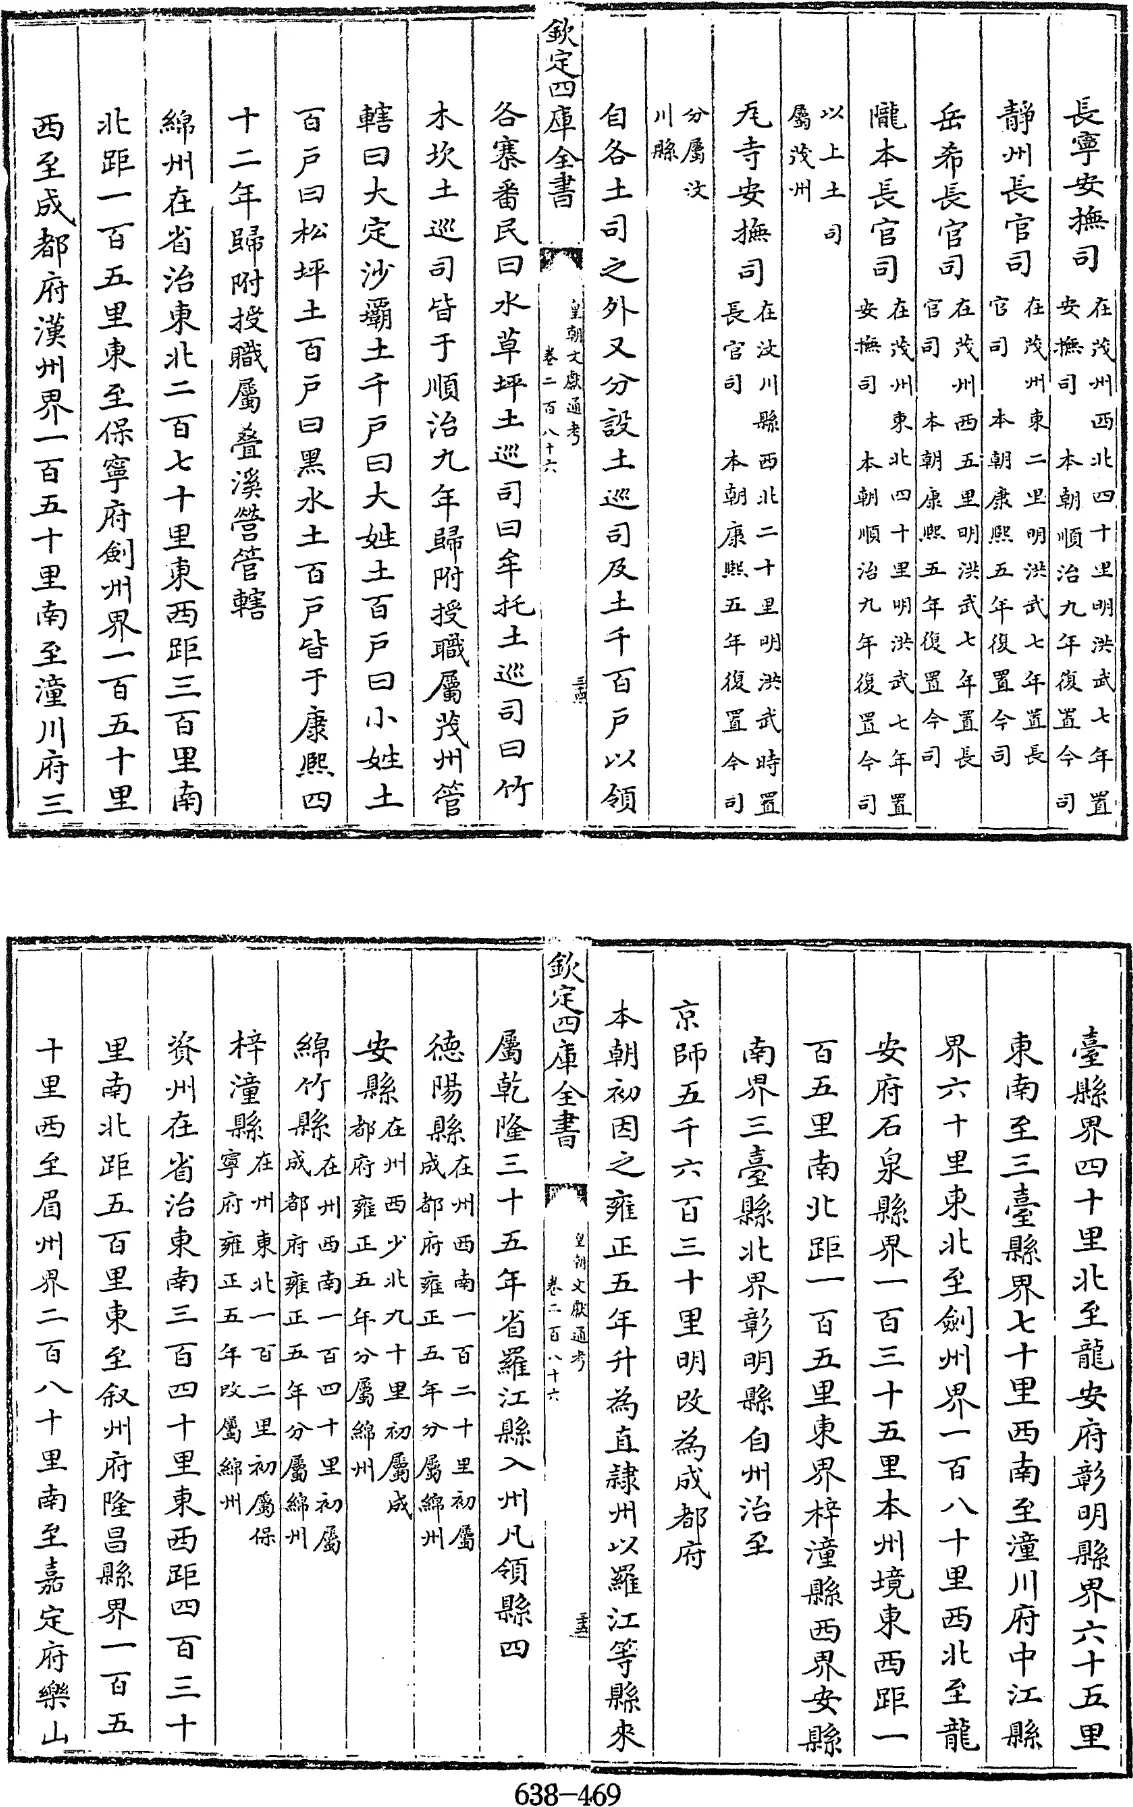 長寧安撫司在茂州西北四十里明洪武七年置安撫司 本朝順治九年復置今司
靜州長官司在茂州東二里明洪武七年置長官司 本朝康熙五年復置今司
岳希長官司在茂州西五里明洪武七年置長官司 本朝康熙五年復置今司
隴本長官司在茂州東北四十里明洪武七年置安撫司 本朝順治九年復置今司
以上土司屬茂州
瓦寺安撫司在汶川縣西北二十里明洪武時置長官司 本朝康熙五年復置今司
分屬汶川縣
自各土司之外又分設土巡司及土千百戶以領
欽定四庫全書 皇朝文獻通考卷二百八十六 三四
各寨番民曰水草坪土巡司曰牟托土巡司曰竹
木坎土巡司皆于順治九年歸附授職屬茂州管
轄曰大定沙壩土千戶曰大姓土百戶曰小姓土
百戶曰松坪土百戶曰黑水土百戶皆于康熙四
十二年歸附授職屬叠溪營管轄
綿州在省治東北二百七十里東西距三百里南
北距一百五里東至保寧府劍州界一百五十里
西至成都府漢州界一百五十里南至潼川府三
臺縣界四十里北至龍安府彰明縣界六十五里
東南至三臺縣界七十里西南至潼川府中江縣
界六十里東北至劍州界一百八十里西北至龍
安府石泉縣界一百三十五里本州境東西距一
百五里南北距一百五里東界梓潼縣西界安縣
南界三臺縣北界彰明縣自州治至
京師五千六百三十里明改為成都府
本朝初因之雍正五年升為直隸州以羅江等縣來
欽定四庫全書 皇朝文獻通考卷二百八十六 三五
屬乾隆三十五年省羅江縣入州凡領縣四
德陽縣在州西南一百二十里初屬成都府雍正五年分屬綿州
安縣在州西少北九十里初屬成都府雍正五年分屬綿州
綿竹縣在州西南一百四十里初屬成都府雍正五年分屬綿州
梓潼縣在州東北一百二里初屬保寧府雍正五年改屬綿州
資州在省治東南三百四十里東西距四百三十
里南北距五百里東至叙州府隆昌縣界一百五
十里西至眉州界二百八十里南至嘉定府樂山
638-469